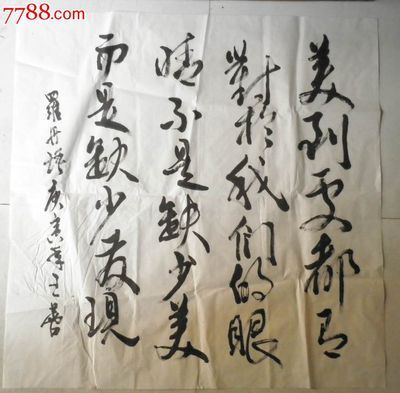 7788.com
美到处都有
對於我们的眼
睛不是缺少美
而是缺少发現
羅丹语庚寅年王書